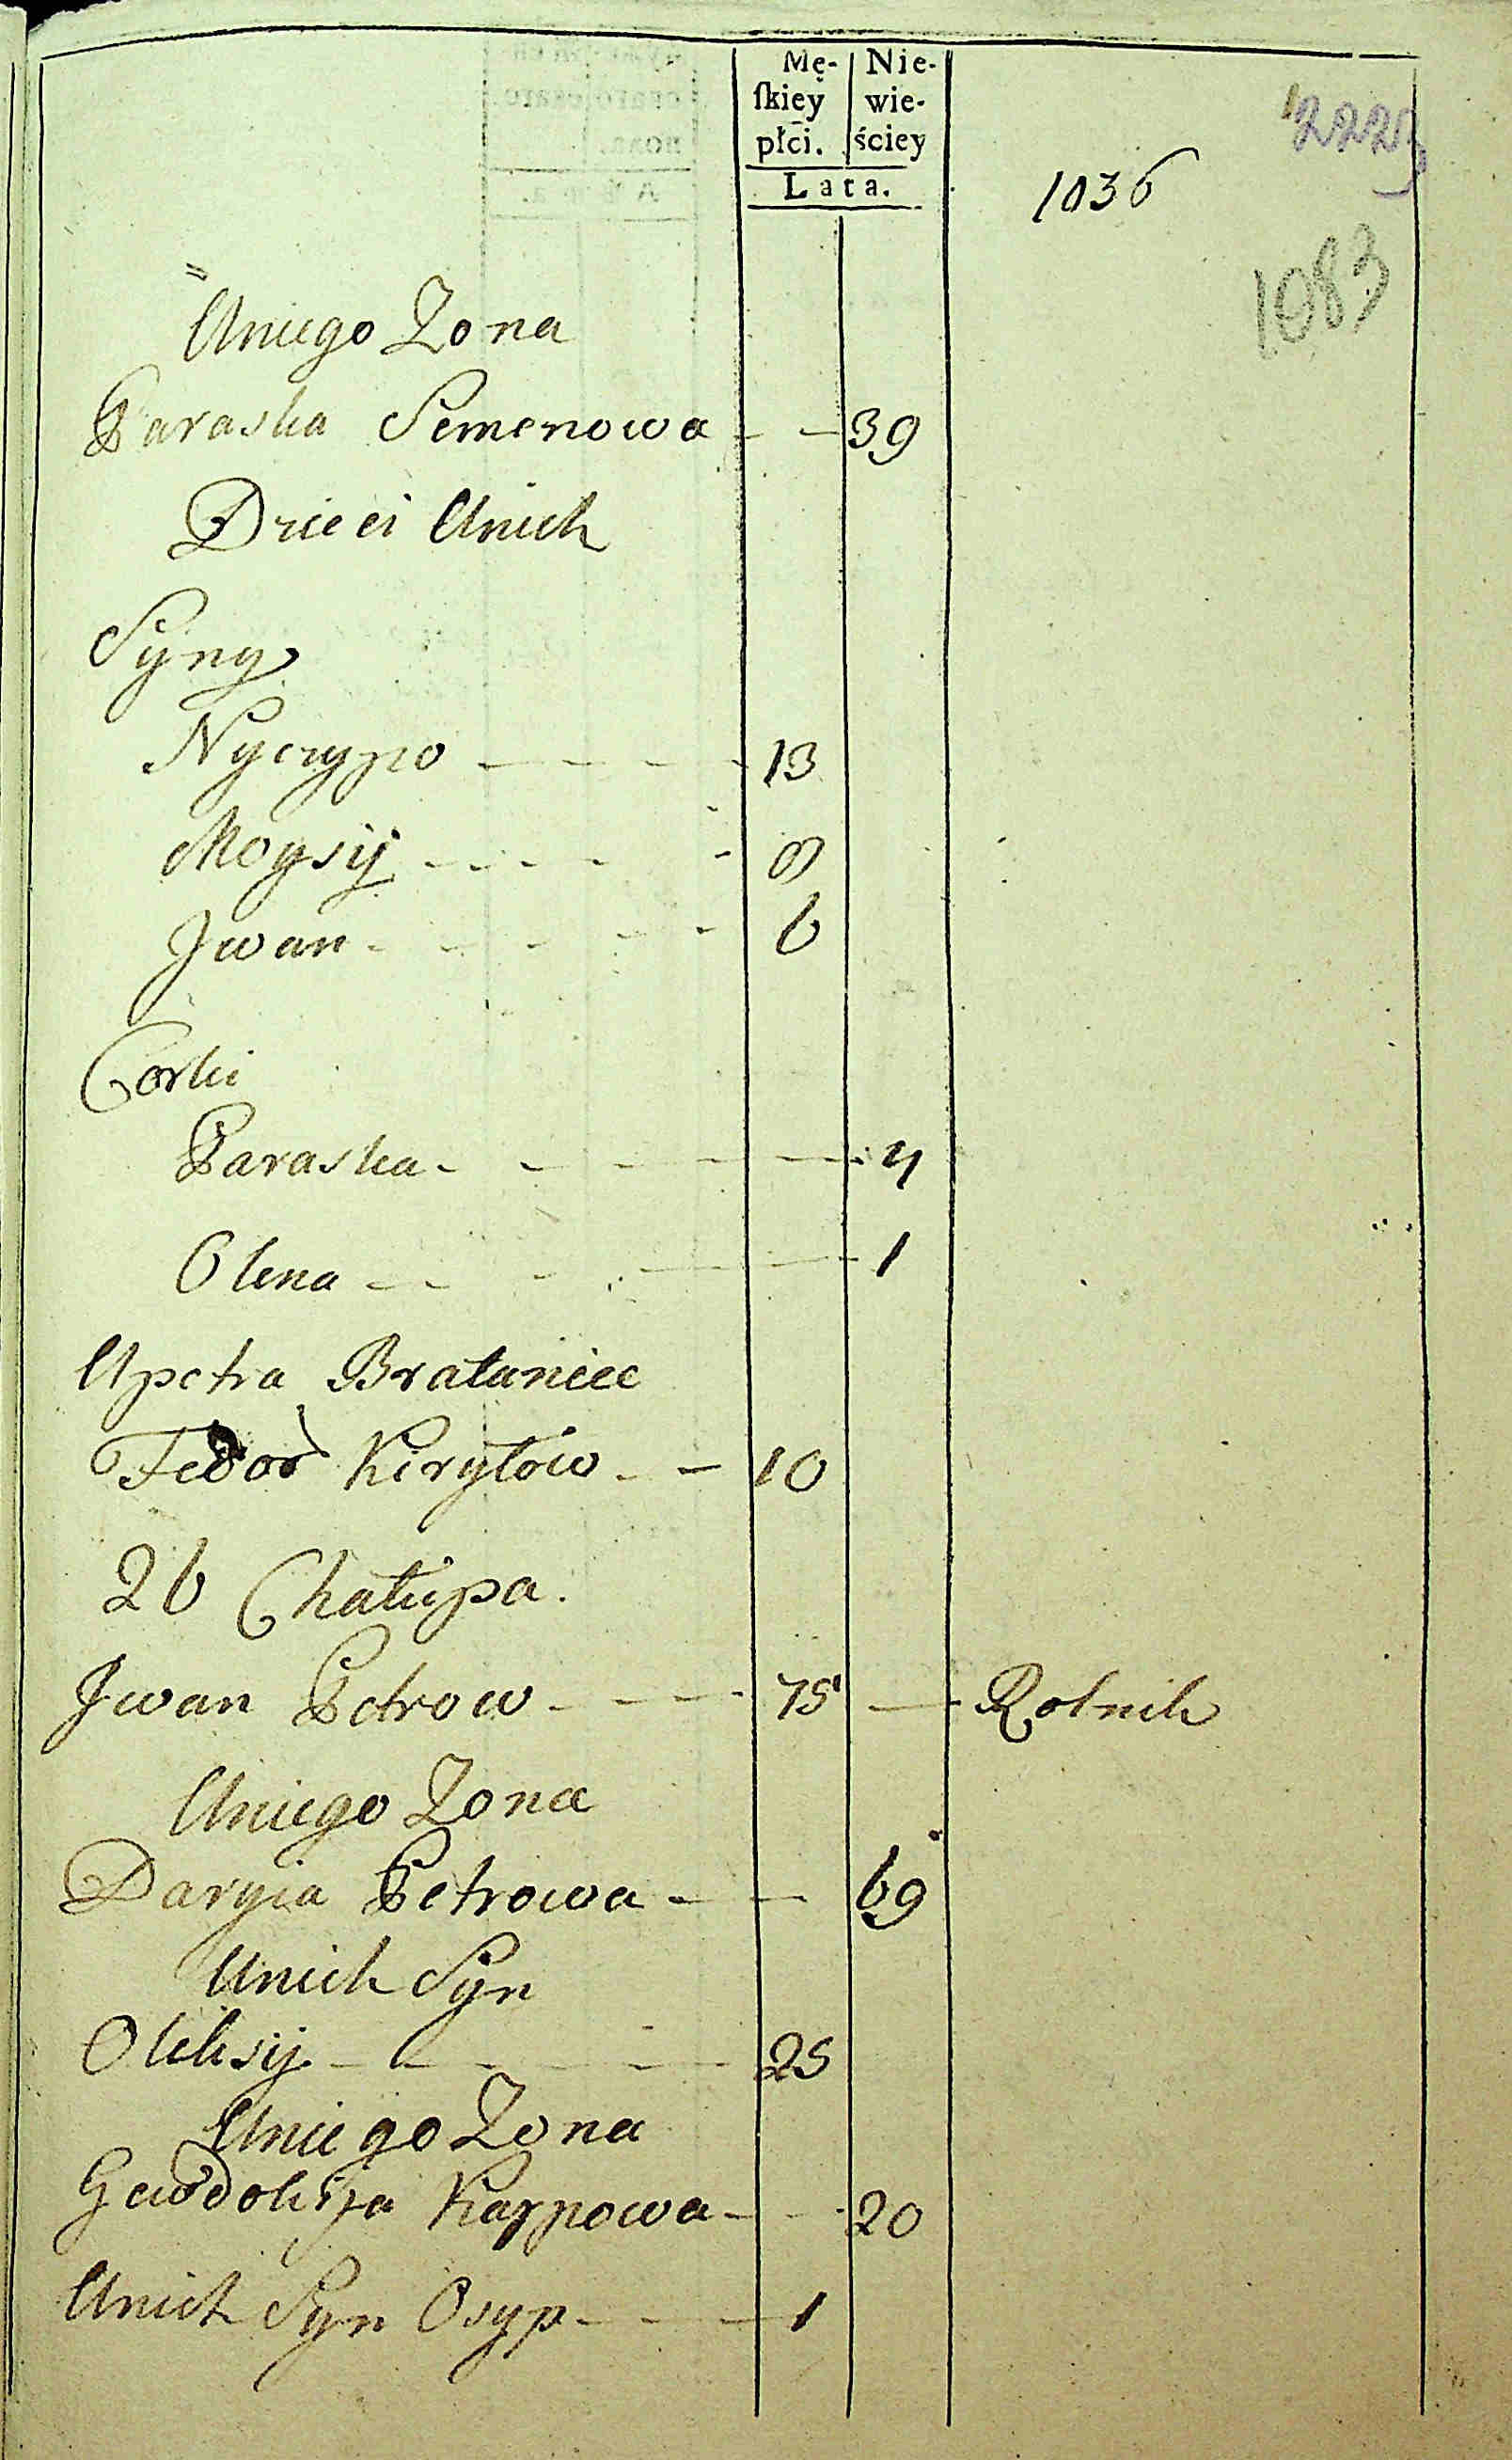 Mę- Nie-
ſkiey wie-
płci. ściey
Lata.
2223
1036
1083
Uniego Zona
Paraska Semenowa 39
Dzieci Unich
Syny
Nyczypo 13
Moysij
Jwan 6
Corki
Paraska 4
Olena 1
Upetra Brataniec
Fedor Kiryłów 10
26 Chałupa.
Jwan Petrow 75 Rolnik
Uniego Zona
Daryia Petrowa 69
Unich Syn
Oleksij 25
Uniego Zona
Gawdokija Karpowa 20
Unich Syn Osyp 1